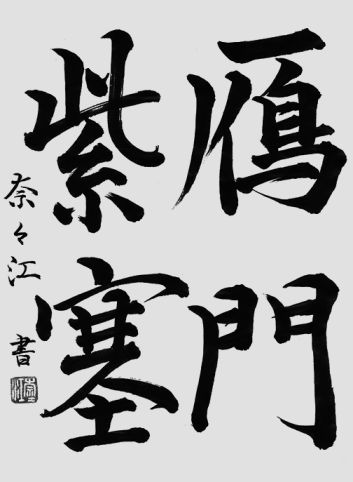 鴈門
紫塞
奈々江書